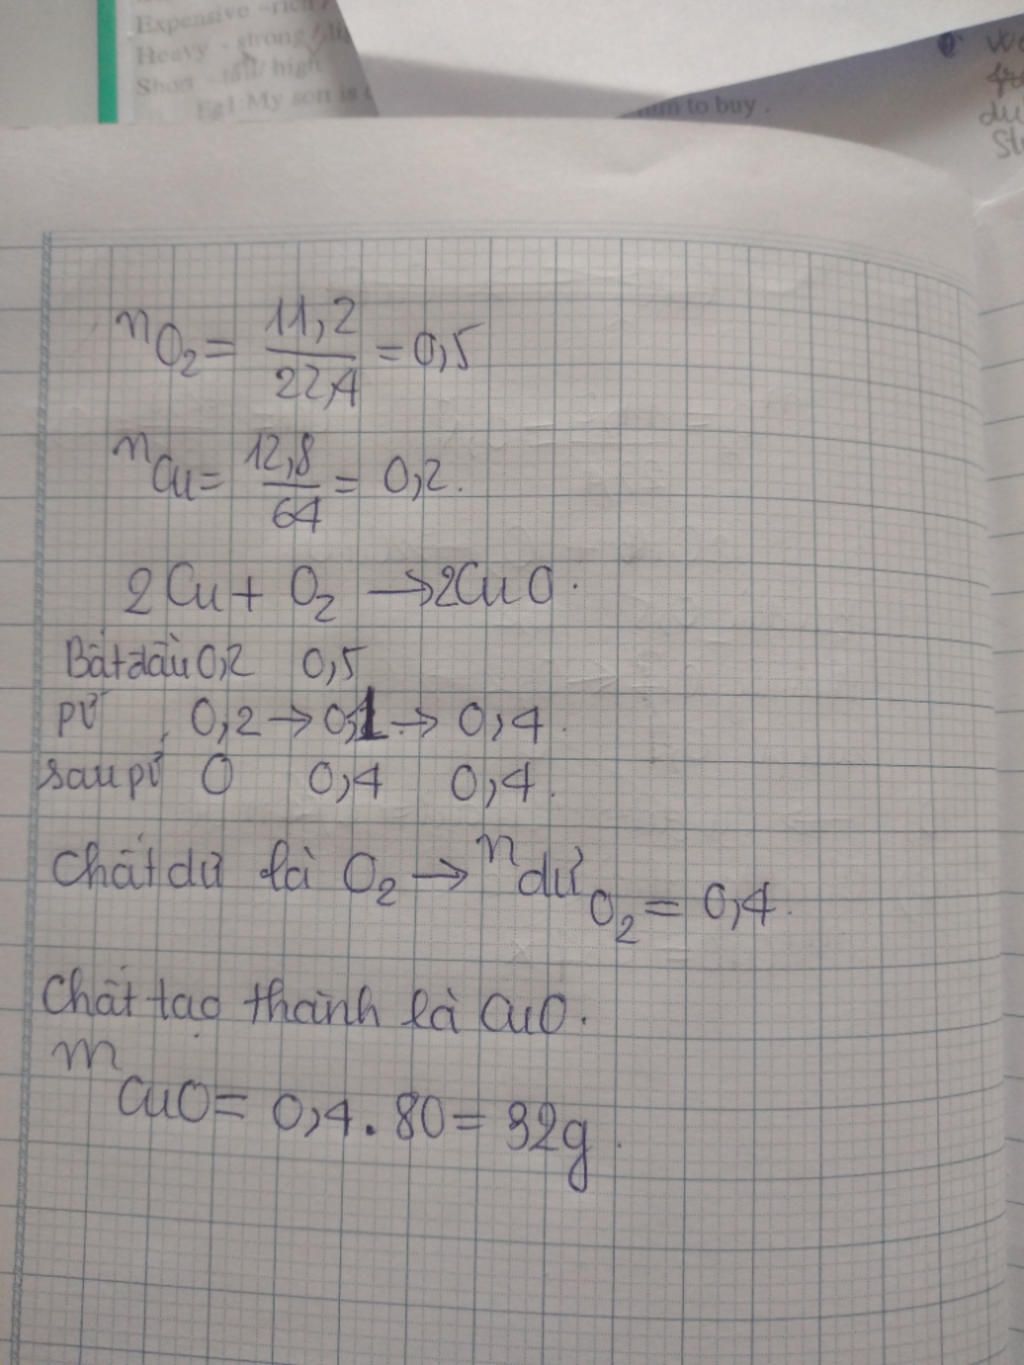 Expensive - rich /
Heavy - strong / lig
Short - tall / high
Eg1: My son is
him to buy .
du
nO2 = 11,2 / 22,4 = 0,5
nCu = 12,8 / 64 = 0,2.
2Cu + O2 → 2CuO.
Bắt đầu 0,2 0,5
pứ 0,2 → 0,1 → 0,4.
sau pứ 0 0,4 0,4.
Chất dư là O2 → n dư O2 = 0,4.
Chất tạo thành là CuO.
mCuO = 0,4 . 80 = 32g.